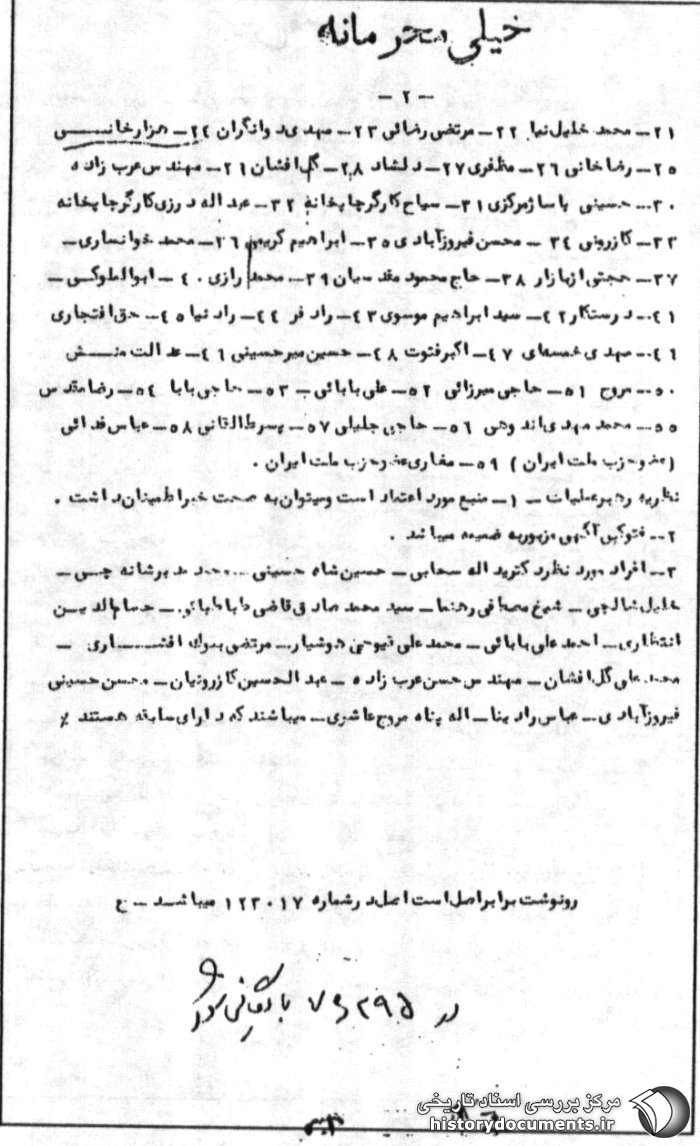 خیلی محرمانه
-۲-
۲۱- محمد خلیل نیا ۲۲- مرتضی رضائی ۲۳- مهدی دواتگران ۲۴- هزارخانی
۲۵- رضا خانی ۲۶- مظفری ۲۷- دلشاد ۲۸- گل افشان ۲۹- مهندس عرب زاده
۳۰- حسینی پاساژ مرکزی ۳۱- سیاح کارگر چاپخانه ۳۲- عبداله درزی کارگر چاپخانه
۳۳- کازرونی ۳۴- محسن فیروزآبادی ۳۵- ابراهیم کریمی ۳۶- محمد خوانساری-
۳۷- حجتی از بازار ۳۸- حاج محمود مقدسیان ۳۹- محمد رازی ۴۰- ابوالطوکسی-
۴۱- درستکار ۴۲- سید ابراهیم موسوی ۴۳- رادفر ۴۴- رادنیا ۴۵- حق افتجاری
۴۶- مهدی خمسه‌ای ۴۷- اکبر فتوت ۴۸- حسین میرحسینی ۴۹- عدالت منش
۵۰- مروج ۵۱- حاجی میرزائی ۵۲- علی بابائی- ۵۳- حاجی بابا ۵۴- رضا مقدس
۵۵- محمد مهدی اندوهی ۵۶- حاجی جلیلی ۵۷- پسر طالقانی ۵۸- عباس فدائی
(عضو حزب ملت ایران) ۵۹- مغاری عضو حزب ملت ایران.
نظریه رهبر عملیات- ۱- منبع مورد اعتماد است و میتوان به صحت خبر اطمینان داشت.
۲- فتوکپی آگهی مزبور به ضمیمه میباشد.
۳- افراد مورد نظر دکتر یداله سحابی- حسین شاه حسینی- محمد مدیر شانه چی-
خلیل شالچی- شیخ مصطفی رهنما- سید محمد صادق قاضی طباطبائی- حسام الدین
انتظاری- احمد علی بابائی- محمد علی فتوحی هوشیار- مرتضی بلوک افشاری-
محمد علی گل افشان- مهندس حسن عرب زاده- عبدالحسین کازرونیان- محسن حسینی
فیروزآبادی- عباس رادینا- اله پناه مروج عاشری- میباشند که دارای سابقه هستند٪
رونوشت برابر اصل است اصل در شماره ۱۲۳۰۱۷ میباشد- ع
در
مرکز بررسی اسناد تاریخی
historydocuments.ir